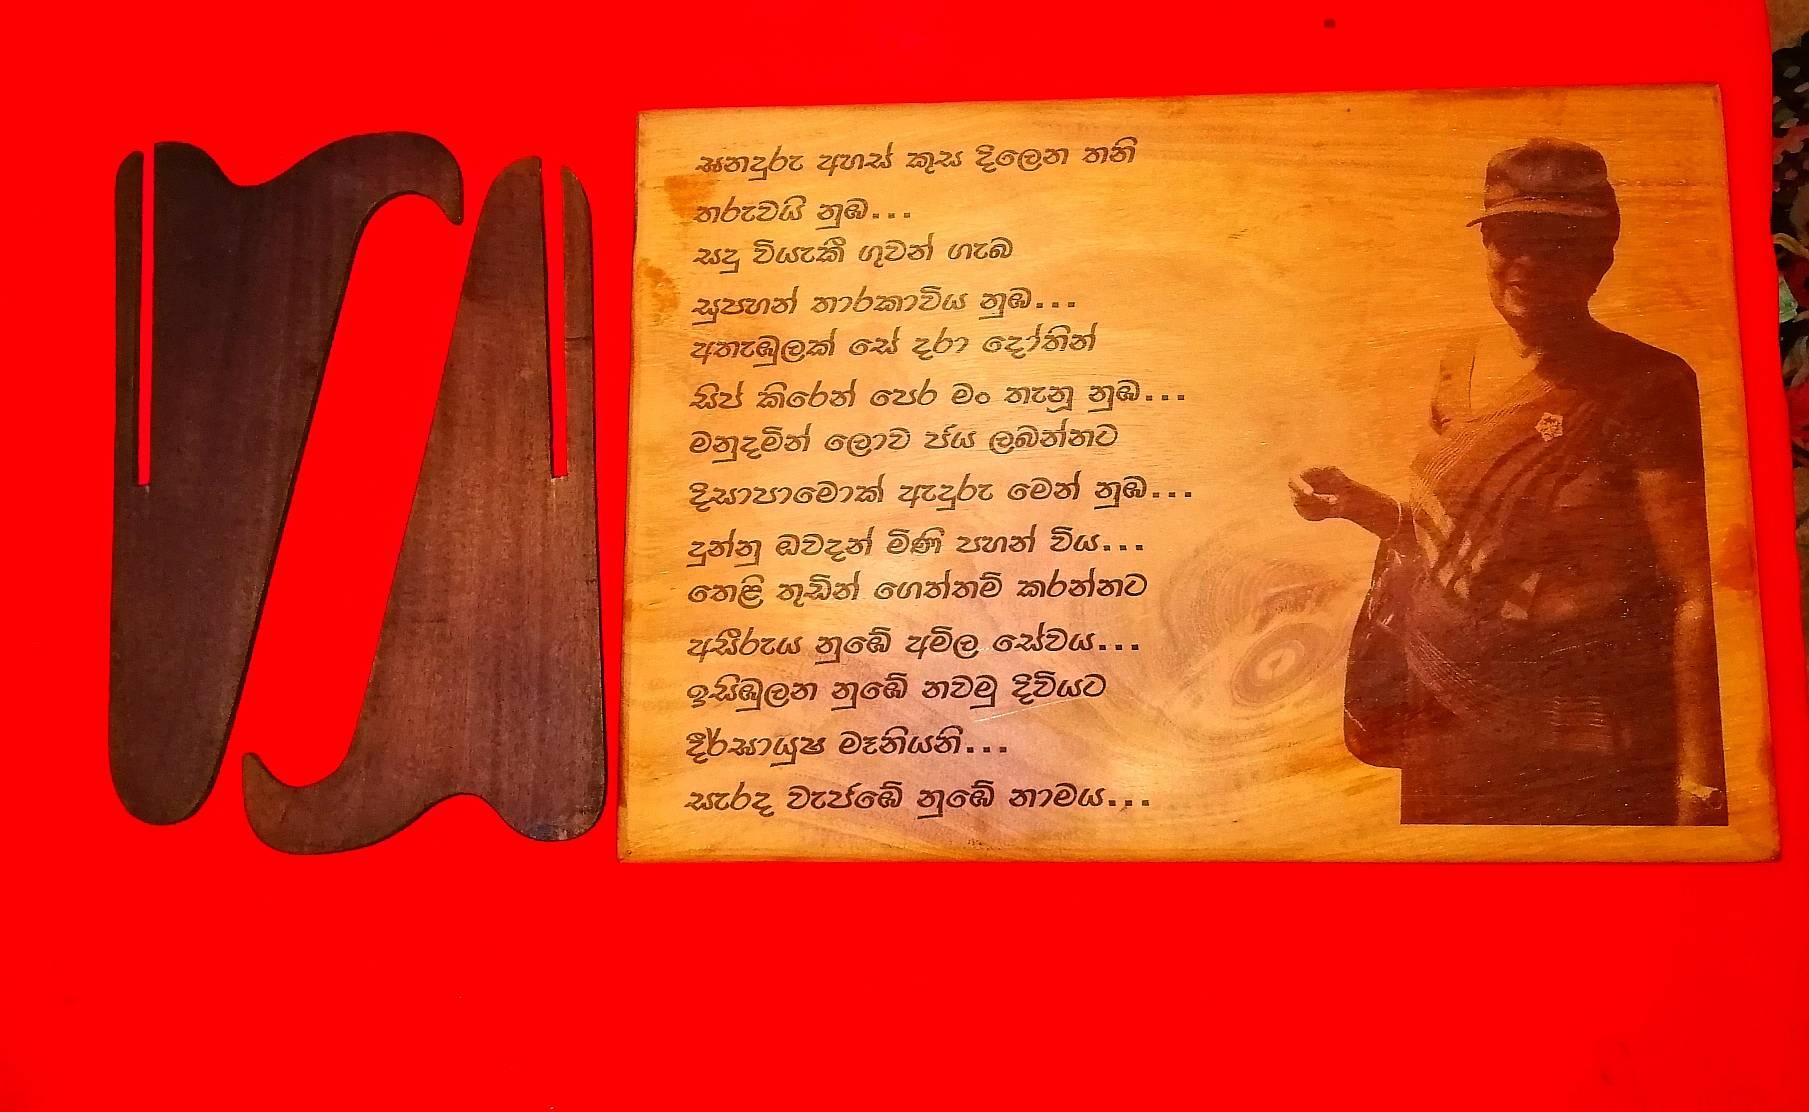 ඝනදුරු අහස් කුස දිලෙන තනි
තරුවයි නුඹ...
සදු වියැකී ගුවන් ගැබ
සුපහන් තාරකාවිය නුඹ...
අතැඹුලක් සේ දරා දෝතින්
සිප් කිරෙන් පෙර මං තැනූ නුඹ...
මනුදමින් ලොව ජය ලබන්නට
දිසාපාමොක් ඇදුරු මෙන් නුඹ...
දුන්නු ඔවදන් මිණි පහන් විය...
තෙළි තුඩින් ගෙත්තම් කරන්නට
අසිරුය නුඹේ අමිල සේවය...
ඉසිඹුලන නුඹේ නවමු දිවියට
දීර්ඝායුෂ මෑනියනි...
සැරද වැජඹේ නුඹේ නාමය...